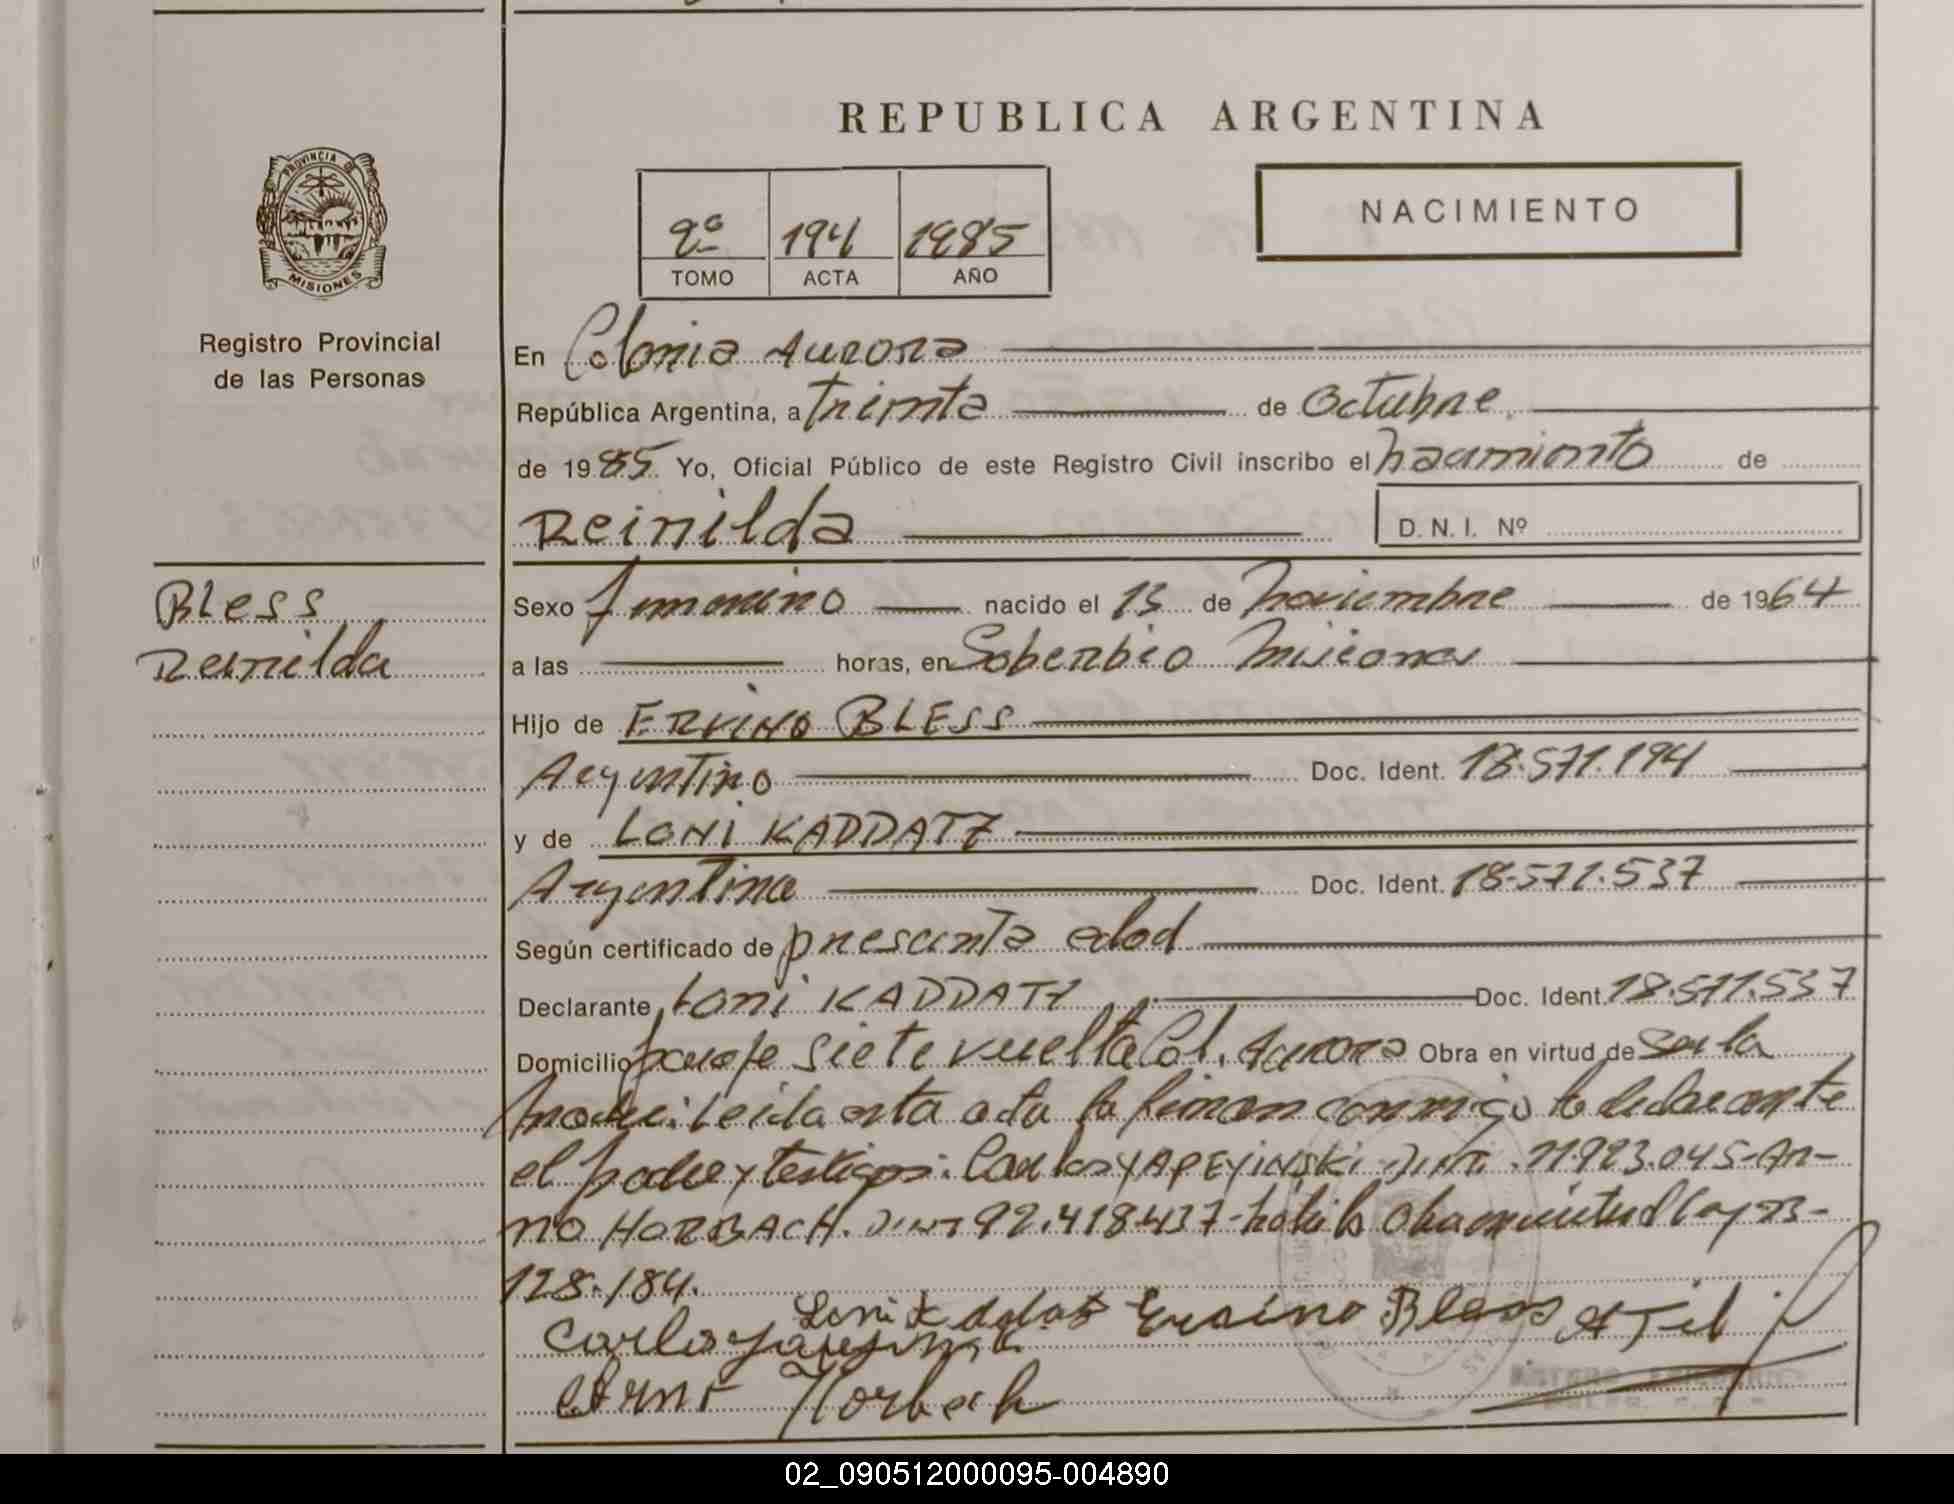 REPUBLICA ARGENTINA
PROVINCIA DE
MISIONES
Registro Provincial
de las Personas
NACIMIENTO
2º 194 1985
TOMO ACTA AÑO
En Colonia Aurora
República Argentina, a treinta de Octubre
de 1985. Yo, Oficial Público de este Registro Civil inscribo el nacimiento de
Reinilda D.N.I. Nº
Bless
Reinilda
Sexo femenino nacido el 15 de noviembre de 1964
a las horas, en Soberbio Misiones
Hijo de ERVINO BLESS
Argentino Doc. Ident. 18.571.194
y de LONI KADDATZ
Argentina Doc. Ident. 18.571.537
Según certificado de presunta edad
Declarante Loni KADDATZ Doc. Ident. 18.571.537
Domicilio paraje siete vuelta Col. Aurora Obra en virtud de ser la
madre: Leida esta acta la firman conmigo la declarante
el padre y testigos: Carlos YAPEYINSKI D.N.I. 11.923.045-Ar-
no HORBACH. DNI 92.418.437- Obra en virtud Ley 23-
128-/84.
Loni Kaddatz Ervino Bless
Carlos
Arno Horbach
02_090512000095-004890